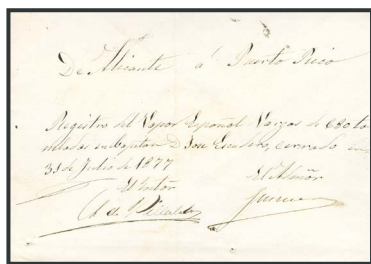 De Alicante á Puerto Rico
Registro del Vapor Español Vargas de 680 to
neladas su Capitan D. José cerrado en
31 de Julio de 1877
El
El